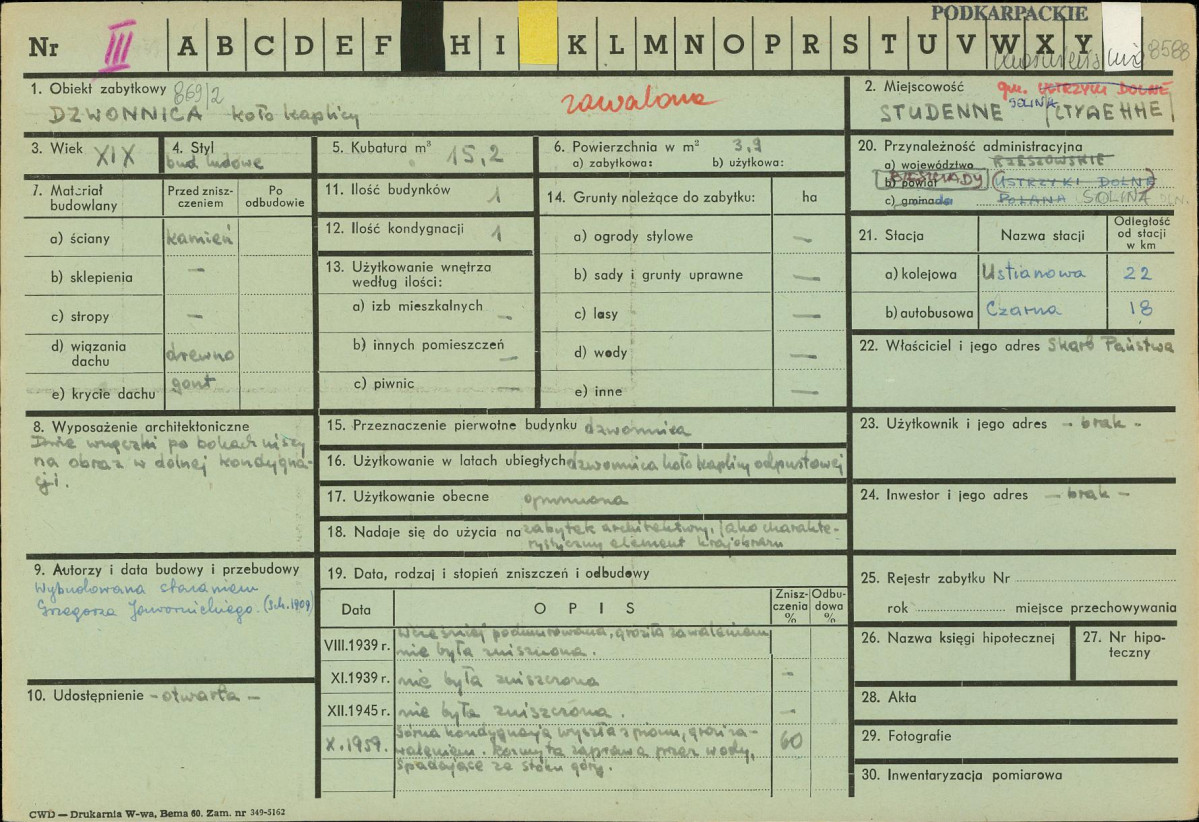 PODKARPACKIE
Nr III A B C D E F H I K L M N O P R S T U V W X Y
8588
1. Obiekt zabytkowy 869/2
DZWONNICA koło kaplicy
zawalona
2. Miejscowość gm. USTRZYKI DOLNE
SOLINA
STUDENNE
3. Wiek XIX
4. Styl
bud. ludowe
5. Kubatura m³ 15,2
6. Powierzchnia w m² 3,9
a) zabytkowa: b) użytkowa:
20. Przynależność administracyjna
a) województwo RZESZOWSKIE
b) powiat BIESZCZADY (USTRZYKI DOLNE)
c) gmina POLANA SOLINA
7. Materiał budowlany
Przed zniszczeniem
Po odbudowie
a) ściany kamień
b) sklepienia —
c) stropy —
d) wiązania dachu drewno
e) krycie dachu gont
11. Ilość budynków 1
12. Ilość kondygnacji 1
13. Użytkowanie wnętrza
według ilości:
a) izb mieszkalnych —
b) innych pomieszczeń —
c) piwnic —
14. Grunty należące do zabytku: ha
a) ogrody stylowe —
b) sady i grunty uprawne —
c) lasy —
d) wody —
e) inne —
21. Stacja
Nazwa stacji
Odległość
od stacji
w km
a) kolejowa Ustianowa 22
b) autobusowa Czarna 18
22. Właściciel i jego adres Skarb Państwa
8. Wyposażenie architektoniczne
Dwie wnęczki po bokach niszy
na obraz w dolnej kondygna-
cji.
15. Przeznaczenie pierwotne budynku dzwonnica
16. Użytkowanie w latach ubiegłych dzwonnica koło kaplicy odpustowej
17. Użytkowanie obecne opuszczona
18. Nadaje się do użycia na zabytek architektury, jako charakte-
rystyczny element krajobrazu
23. Użytkownik i jego adres - brak -
24. Inwestor i jego adres - brak -
9. Autorzy i data budowy i przebudowy
Wybudowana staraniem
Grzegorza Jawornickiego.
10. Udostępnienie - otwarta -
19. Data, rodzaj i stopień zniszczeń i odbudowy
Data
OPIS
Znisz-
czenia
%
Odbu-
dowa
%
VIII.1939 r. Wcześniej podmurowana, groziła zawaleniem
nie była zniszczona.
XI.1939 r. nie była zniszczona —
XII.1945 r. nie była zniszczona. —
X.1959. Górna kondygnacja wyszła z pionu, grozi za-
waleniem. Rozmyta zaprawa przez wody, 60
spadające ze stoku góry.
25. Rejestr zabytku Nr
rok miejsce przechowywania
26. Nazwa księgi hipotecznej
27. Nr hipo-
teczny
28. Akta
29. Fotografie
30. Inwentaryzacja pomiarowa
CWD — Drukarnia W-wa, Bema 60. Zam. nr 349-5162